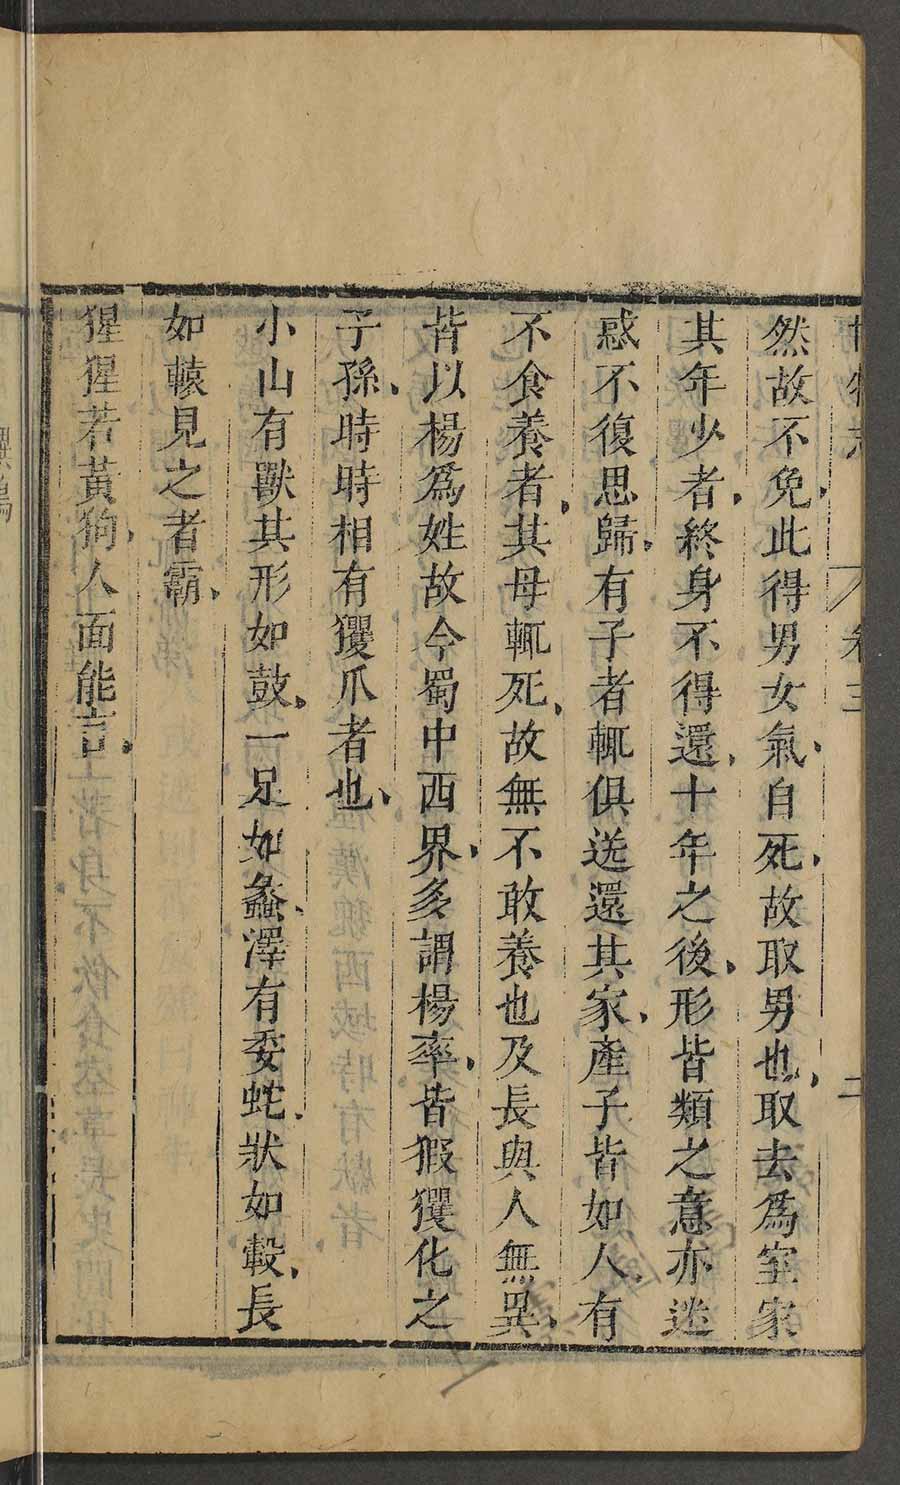 博物志 卷三 二
然故不免此得男女氣自死故取男也取去爲室家
其年少者終身不得還十年之後形皆類之意亦迷
惑不復思歸有子者輒俱送還其家產子皆如人有
不食養者其母輒死故無不敢養也及長與人無異
皆以楊爲姓故今蜀中西界多謂楊率皆猳玃化之
子孫時時相有玃爪者也
小山有獸其形如鼓一足如蠡澤有委蛇狀如轂長
如轅見之者霸
猩猩若黃狗人面能言